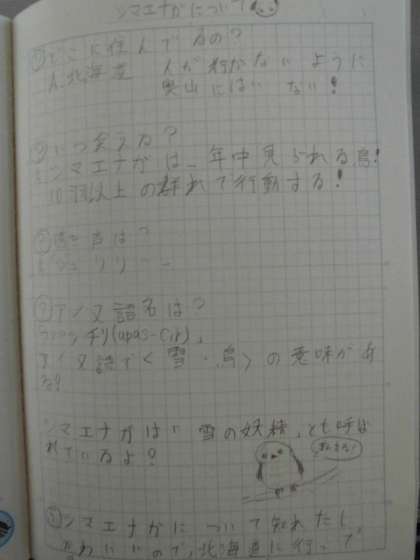 シマエナガについて
①どこに住んでるの?
A.北海道 人が行かないように
奥山にはいない!
②いつ会える?
シマエナガは、一年中見られる鳥!
10羽以上の群れで行動する!
③鳴き声は?
ジュリリ
④アイヌ語名は?
チリ(upas-cir)。
アイヌ語で〈雪・鳥〉の意味があ
る!
シマエナガは" 雪の妖精、とも呼ば
れているよ?
⑤シマエナガについて知れたし、
かわいいので、北海道に行って